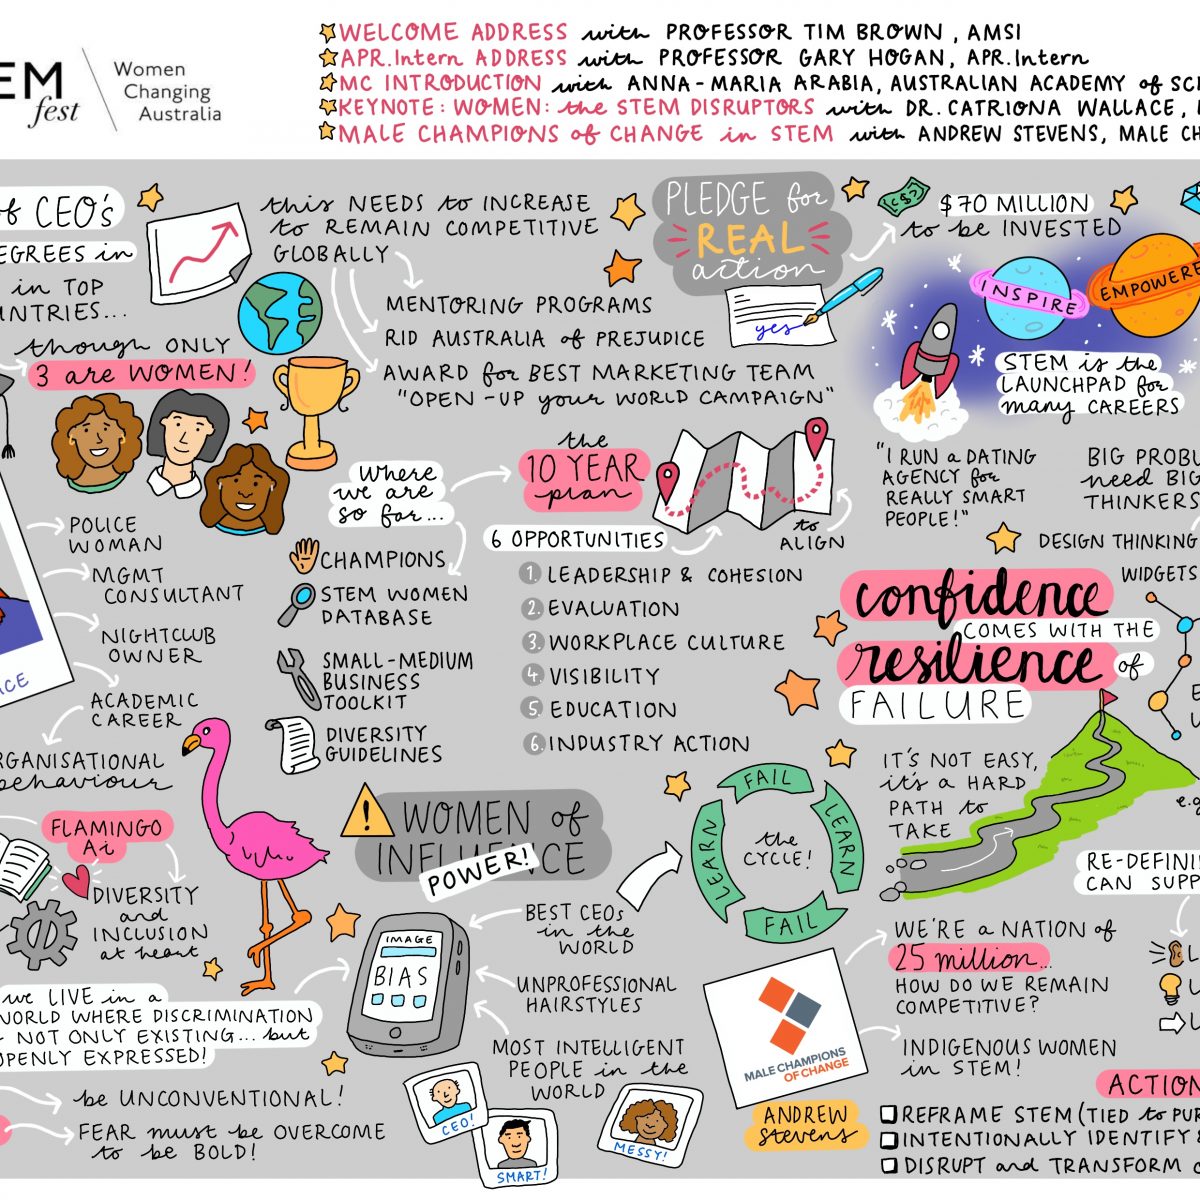 EM
fest
Women
Changing
Australia
WELCOME ADDRESS with PROFESSOR TIM BROWN, AMSI
APR.Intern ADDRESS with PROFESSOR GARY HOGAN, APR.Intern
MC INTRODUCTION with ANNA-MARIA ARABIA, AUSTRALIAN ACADEMY of SC
KEYNOTE: WOMEN: the STEM DISRUPTORS with DR. CATRIONA WALLACE,
MALE CHAMPIONS of CHANGE in STEM with ANDREW STEVENS, MALE CH
of CEO's
EGREES in
in TOP
UNTRIES...
though ONLY
3 are WOMEN!
this NEEDS to INCREASE
to REMAIN COMPETITIVE
GLOBALLY
MENTORING PROGRAMS
RID AUSTRALIA of PREJUDICE
AWARD for BEST MARKETING TEAM
"OPEN-UP your WORLD CAMPAIGN"
PLEDGE for
REAL
action
yes
$
$70 MILLION
to be INVESTED
INSPIRE
EMPOWERE
STEM is the
LAUNCHPAD for
many CAREERS
"I RUN a DATING
AGENCY for
REALLY SMART
PEOPLE!"
BIG PROBL
need BIG
THINKERS
DESIGN THINKING
WIDGETS
POLICE
WOMAN
MGMT
CONSULTANT
NIGHTCLUB
OWNER
ACADEMIC
CAREER
RGANISATIONAL
behaviour
ACE
Where
we are
so far...
CHAMPIONS
STEM WOMEN
DATABASE
SMALL-MEDIUM
BUSINESS
TOOLKIT
DIVERSITY
GUIDELINES
the
10 YEAR
plan
to
ALIGN
6 OPPORTUNITIES
1. LEADERSHIP & COHESION
2. EVALUATION
3. WORKPLACE CULTURE
4. VISIBILITY
5. EDUCATION
6. INDUSTRY ACTION
confidence
COMES WITH THE
resilience of
FAILURE
IT'S NOT EASY,
it's a HARD
PATH to
TAKE
e.g
RE-DEFINI
CAN SUPP
FLAMINGO
Ai
DIVERSITY
and
INCLUSION
at heart
we LIVE in a
WORLD WHERE DISCRIMINATION
NOT ONLY EXISTING... but
OPENLY EXPRESSED!
be UNCONVENTIONAL!
FEAR must be OVERCOME
to be BOLD!
!
WOMEN of
INFLUENCE
POWER!
IMAGE
BIAS
BEST CEOs
in the
WORLD
UNPROFESSIONAL
HAIRSTYLES
MOST INTELLIGENT
PEOPLE in the
WORLD
CEO!
SMART!
MESSY!
FAIL
LEARN
FAIL
LEARN
the
CYCLE!
MALE CHAMPIONS
OF CHANGE
ANDREW
Stevens
WE'RE a NATION of
25 million...
HOW DO WE REMAIN
COMPETITIVE?
INDIGENOUS WOMEN
in STEM!
ACTION
REFRAME STEM (TIED to PUR
INTENTIONALLY IDENTIFY &
DISRUPT and TRANSFORM